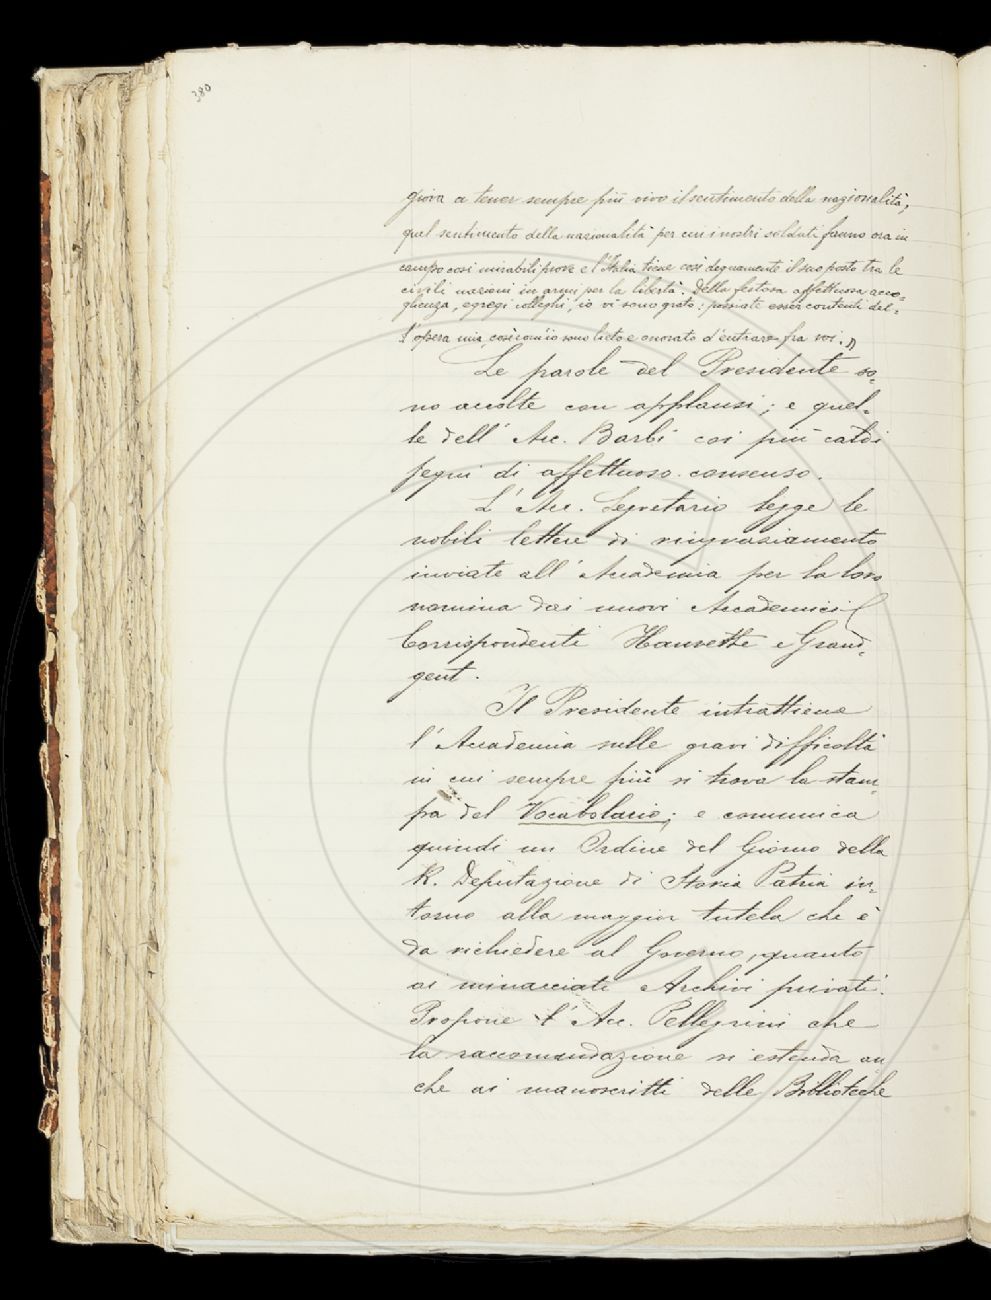 380
giova a tener sempre più vivo il sentimento della nazionalità;
quel sentimento della nazionalità per cui i nostri soldati fanno ora in
campo così mirabili prove e l'Italia tiene così degnamente il suo posto tra le
civili nazioni in armi per la libertà. Della festosa affettuosa acco=
glienza, egregi colleghi, io vi sono grato: possiate esser contenti del=
l'opera mia, così com'io sono lieto e onorato d'entrare fra voi."
Le parole del Presidente so=
no accolte con applausi; e quel=
le dell'Acc. Barbi coi più caldi
segni di affettuoso consenso.
L'Acc. Segretario legge le
nobili lettere di ringraziamento
inviate all'Accademia per la loro
nomina dai nuovi Accademici
Corrispondenti Hauvette e Grand=
gent.
Il Presidente intrattiene
l'Accademia sulle gravi difficoltà
in cui sempre più si trova la stam=
pa del Vocabolario; e comunica
quindi un Ordine del Giorno della
R. Deputazione di Storia Patria in=
torno alla maggior tutela che è
da richiedere al Governo, quanto
ai minacciati Archivi privati.
Propone l'Acc. Pellegrini che
la raccomandazione si estenda an
che ai manoscritti delle Biblioteche